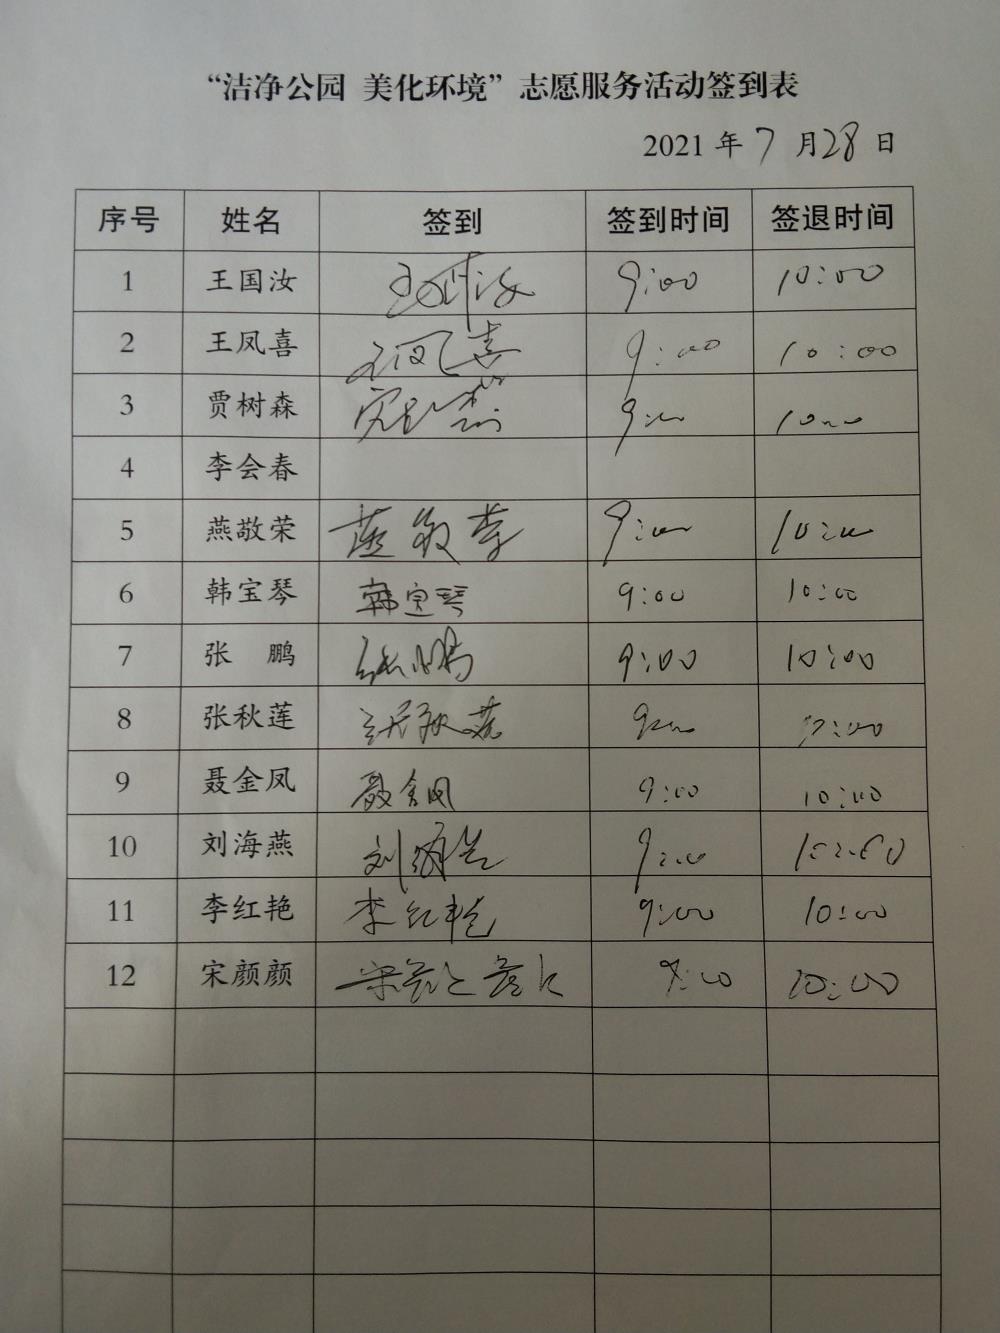 “洁净公园 美化环境”志愿服务活动签到表
2021 年 7 月 28 日
序号 姓名 签到 签到时间 签退时间
1 王国汝 王国汝 9:00 10:00
2 王凤喜 王凤喜 9:00 10:00
3 贾树森 9:00 10:00
4 李会春
5 燕敬荣 燕敬荣 9:00 10:00
6 韩宝琴 韩宝琴 9:00 10:00
7 张 鹏 张鹏 9:00 10:00
8 张秋莲 张秋莲 9:00
9 聂金凤 聂金凤 9:00 10:00
10 刘海燕 刘海燕 9:00 10:00
11 李红艳 李红艳 9:00 10:00
12 宋颜颜 宋颜颜 9:00 10:00